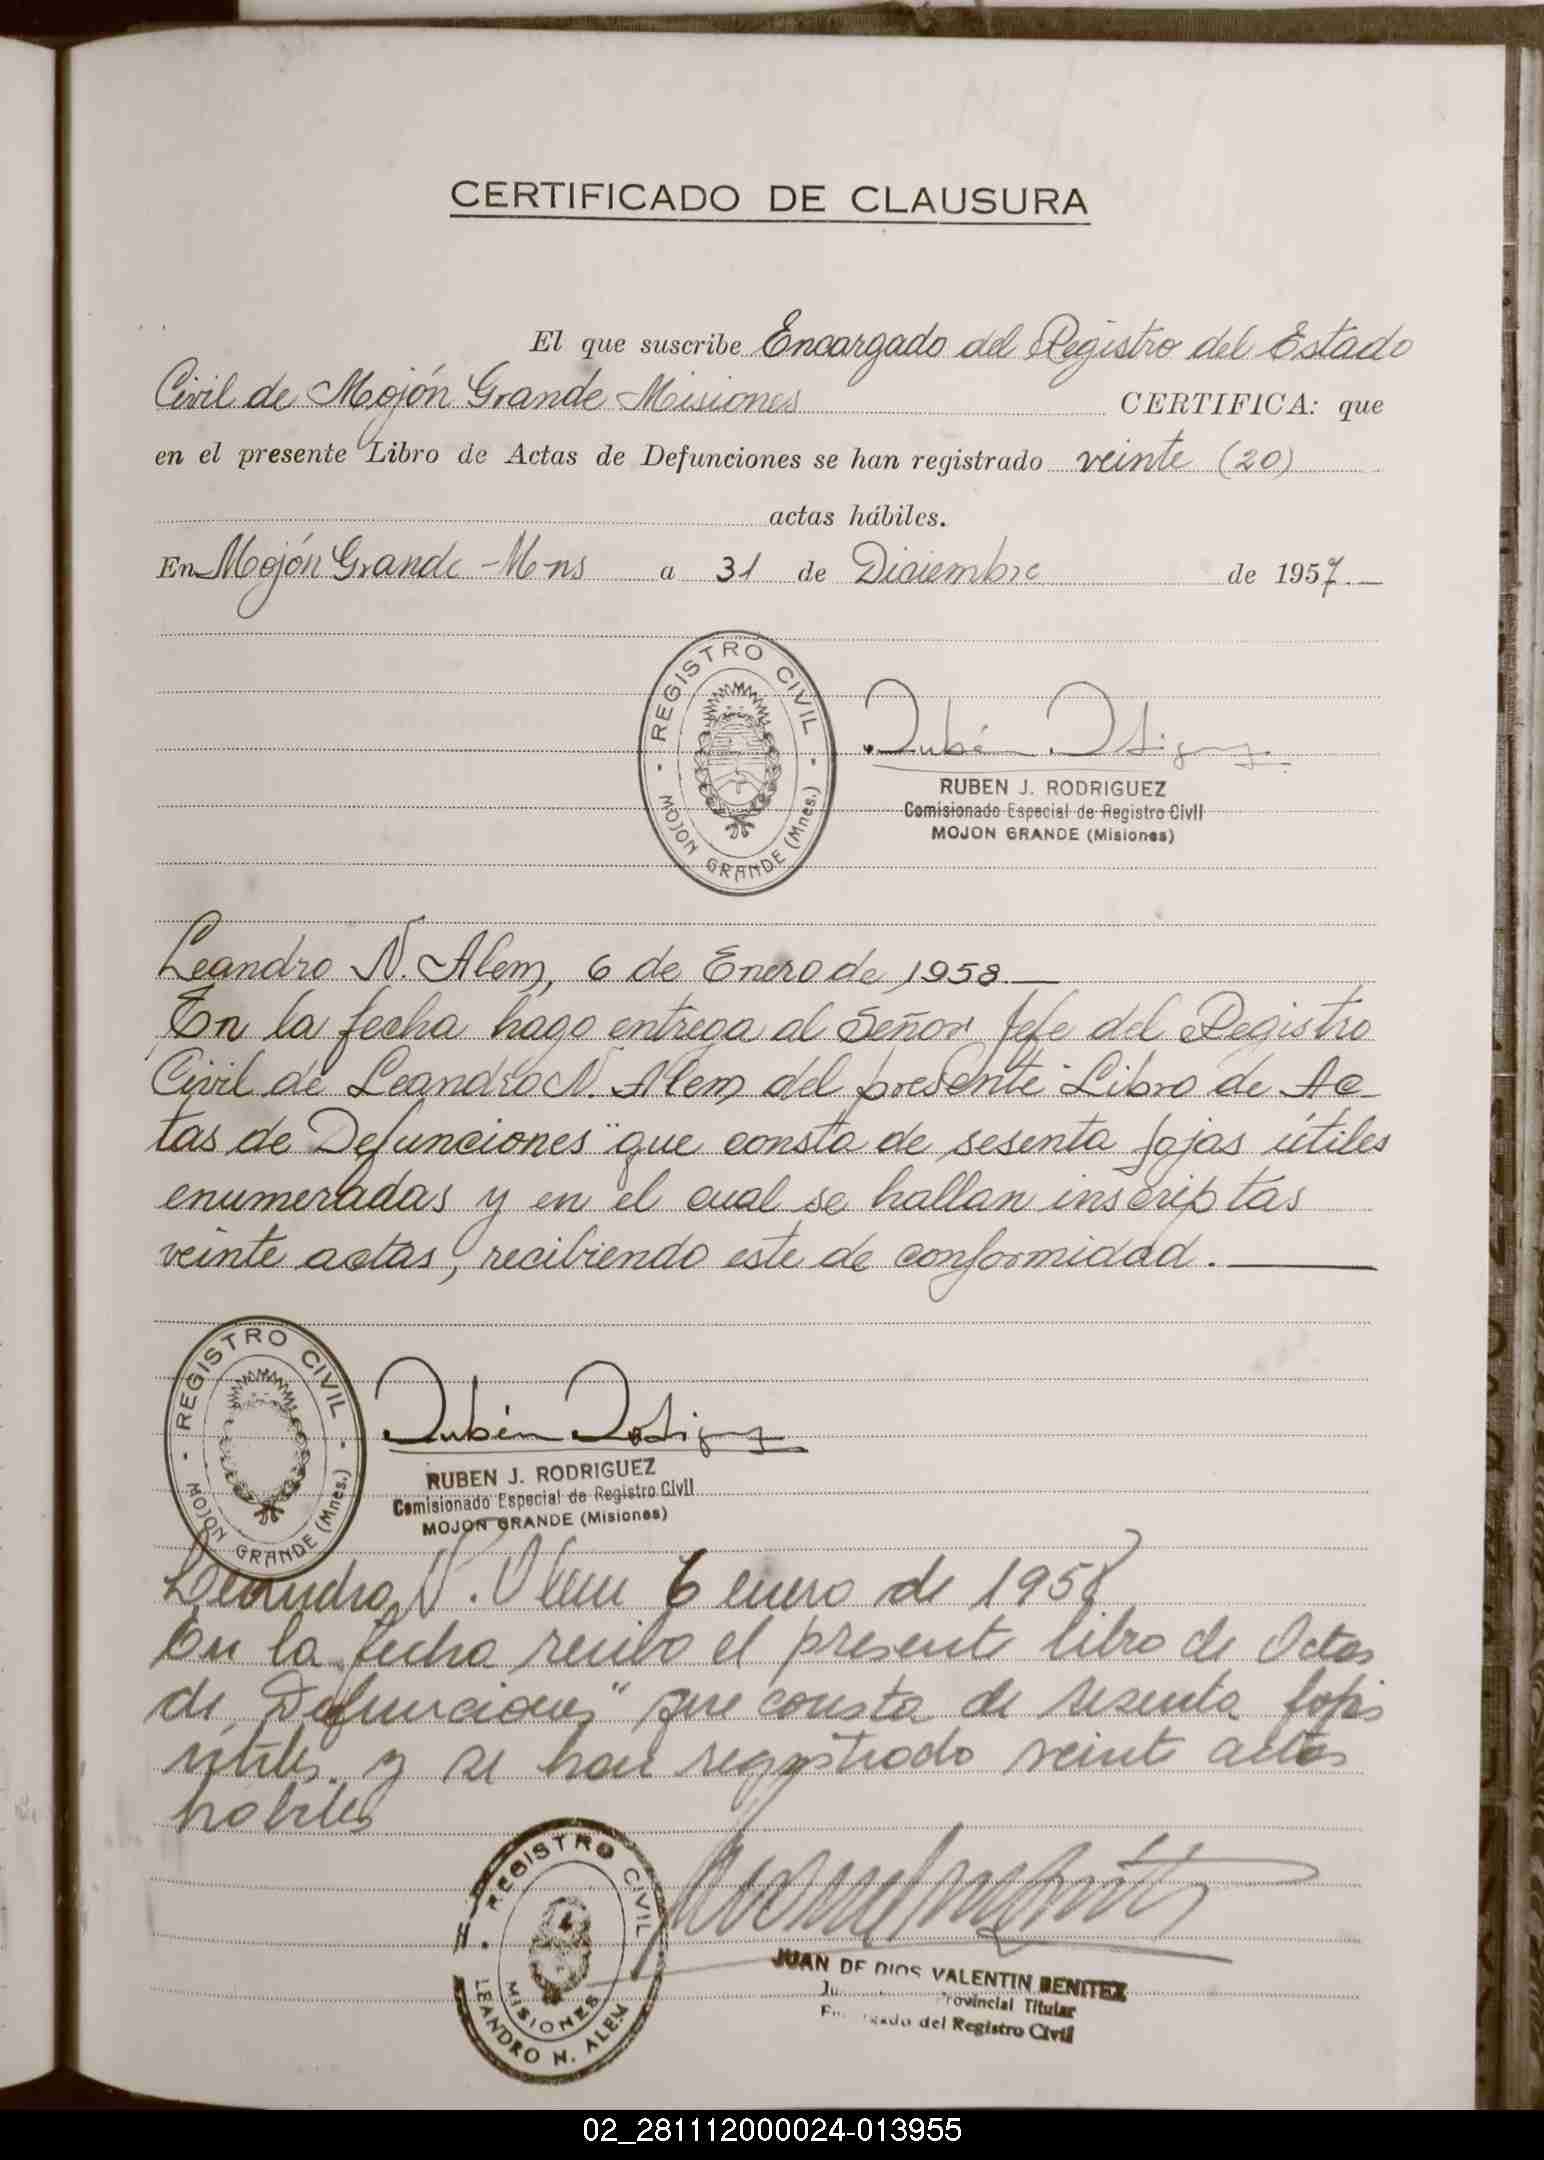 CERTIFICADO DE CLAUSURA
El que suscribe Encargado del Registro del Estado
Civil de Mojón Grande Misiones CERTIFICA: que
en el presente Libro de Actas de Defunciones se han registrado veinte (20)
actas hábiles.
En Mojón Grande - M-ns a 31 de Diciembre de 1957.—
REGISTRO CIVIL
MOJON GRANDE (Mnes.)
Rubén Rodriguez
RUBEN J. RODRIGUEZ
Comisionado Especial de Registro Civil
MOJON GRANDE (Misiones)
Leandro N. Alem, 6 de Enero de 1958.—
En la fecha hago entrega al Señor Jefe del Registro
Civil de Leandro N. Alem del presente "Libro de Ac-
tas de Defunciones" que consta de sesenta fojas útiles
enumeradas y en el cual se hallan inscriptas
veinte actas, recibiendo este de conformidad.—
REGISTRO CIVIL
MOJON GRANDE (Mnes.)
Rubén Rodriguez
RUBEN J. RODRIGUEZ
Comisionado Especial de Registro Civil
MOJON GRANDE (Misiones)
Leandro N. Alem 6 enero de 1958
En la fecha recibo el presente libro de Actas
de "Defunciones" que consta de sesenta fojas
útiles y se han registrado veinte actas
habiles
REGISTRO CIVIL
MISIONES
LEANDRO N. ALEM
JUAN DE DIOS VALENTIN BENITEZ
Provincial Titular
Encargado del Registro Civil
02_281112000024-013955